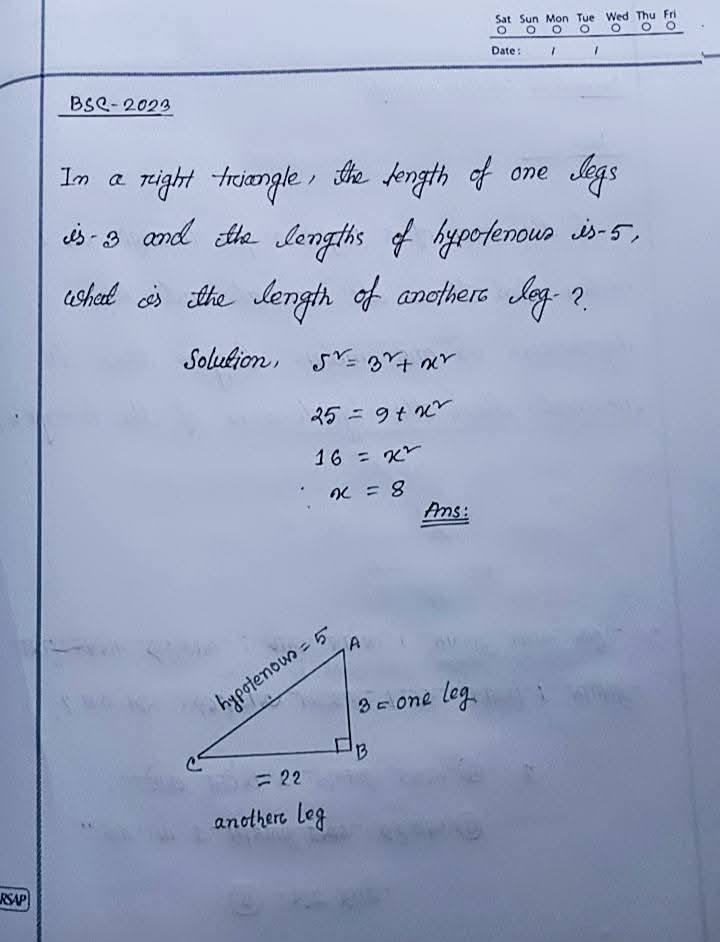 Sat Sun Mon Tue Wed Thu Fri
Date: / /
BSC-2023
In a right triangle, the length of one legs
is-3 and the lengths of hypotenous is-5,
what is the length of another leg-?
Solution, 5² = 3² + x²
25 = 9 + x²
16 = x²
∴ x = 8
Ans:
hypotenous = 5
A
3 = one leg
C
B
= 22
another leg
RSAP